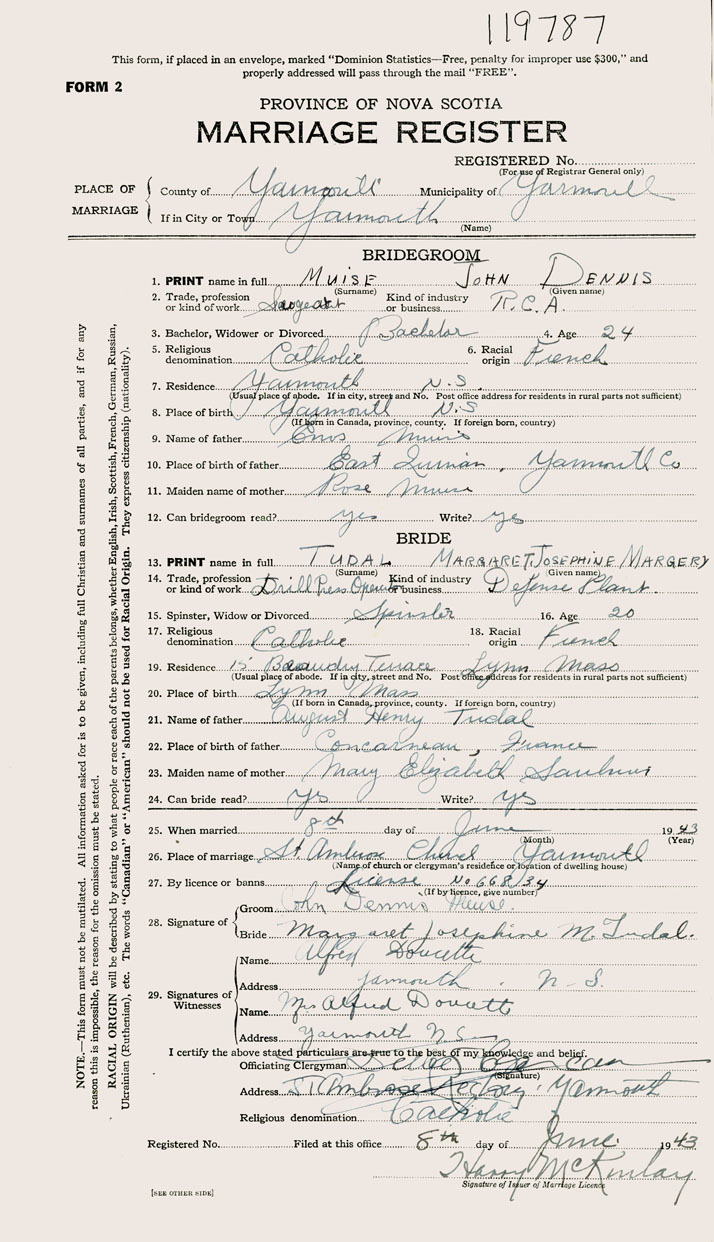 119787
This form, if placed in an envelope, marked "Dominion Statistics—Free, penalty for improper use $300," and
properly addressed will pass through the mail "FREE".
FORM 2
PROVINCE OF NOVA SCOTIA
MARRIAGE REGISTER
REGISTERED No.
(For use of Registrar General only)
PLACE OF MARRIAGE
County of Yarmouth Municipality of Yarmouth
If in City or Town Yarmouth
(Name)
BRIDEGROOM
1. PRINT name in full MUISE JOHN DENNIS
(Surname) (Given name)
2. Trade, profession or kind of work Sargeant Kind of industry or business R.C.A.
3. Bachelor, Widower or Divorced Bachelor 4. Age 24
5. Religious denomination Catholic 6. Racial origin French
7. Residence Yarmouth N.S.
(Usual place of abode. If in city, street and No. Post office address for residents in rural parts not sufficient)
8. Place of birth Yarmouth N.S
(If born in Canada, province, county. If foreign born, country)
9. Name of father Muise
10. Place of birth of father East Quinan, Yarmouth Co
11. Maiden name of mother Rose Muise
12. Can bridegroom read? yes Write? yes
BRIDE
13. PRINT name in full TUDAL MARGARET JOSEPHINE MARGERY
(Surname) (Given name)
14. Trade, profession or kind of work Drill Press Kind of industry or business Defense Plant.
15. Spinster, Widow or Divorced Spinster 16. Age 20
17. Religious denomination Catholic 18. Racial origin French
19. Residence 15 Beaudry Terrace Lynn Mass
(Usual place of abode. If in city, street and No. Post office address for residents in rural parts not sufficient)
20. Place of birth Lynn Mass
(If born in Canada, province, county. If foreign born, country)
21. Name of father August Henry Tudal
22. Place of birth of father Concarneau, France
23. Maiden name of mother Mary Elizabeth
24. Can bride read? yes Write? yes
25. When married 8th day of June 1943
(Month) (Year)
26. Place of marriage St. Ambrose Church Yarmouth
(Name of church or clergyman's residence or location of dwelling house)
27. By licence or banns License No 668134
(If by licence, give number)
28. Signature of
Groom John Dennis Meuse.
Bride Margaret Josephine M. Tudal.
29. Signatures of Witnesses
Name Alfred Doucette
Address Yarmouth. N-S.
Name Mrs Alfred Doucette
Address Yarmouth N.S
I certify the above stated particulars are true to the best of my knowledge and belief.
Officiating Clergyman
(Signature)
Address St Ambrose Rectory, Yarmouth
Religious denomination Catholic
Registered No. Filed at this office 8th day of June. 1943
Harry McKinlay
Signature of Issuer of Marriage Licence
[SEE OTHER SIDE]
NOTE.—This form must not be mutilated. All information asked for is to be given, including full Christian and surnames of all parties, and if for any
reason this is impossible, the reason for the omission must be stated.
RACIAL ORIGIN will be described by stating to what people or race each of the parents belongs, whether English, Irish, Scottish, French, German, Russian,
Ukrainian (Ruthenian), etc. The words "Canadian" or "American" should not be used for Racial Origin. They express citizenship (nationality).